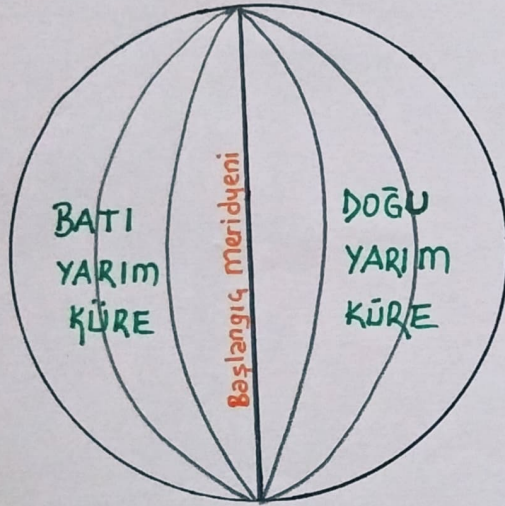 BATI
YARIM
KÜRE
Başlangıç meridyeni
DOĞU
YARIM
KÜRE